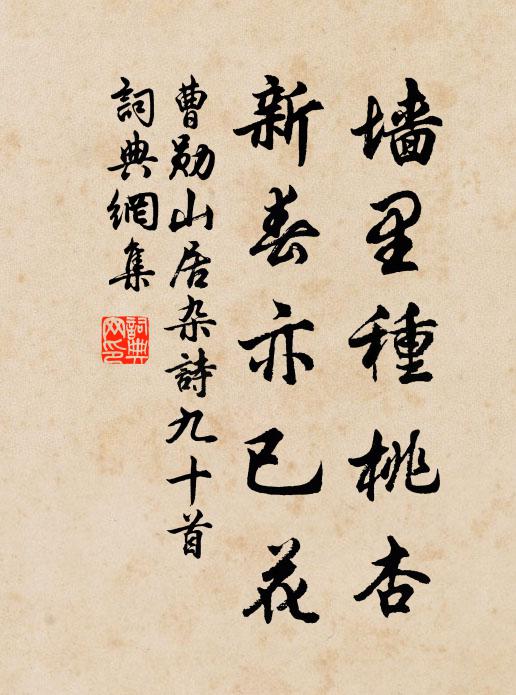 墙里種桃杏
新春亦已花
曹勋山居杂詩九十首
詞典網集
詞典網印